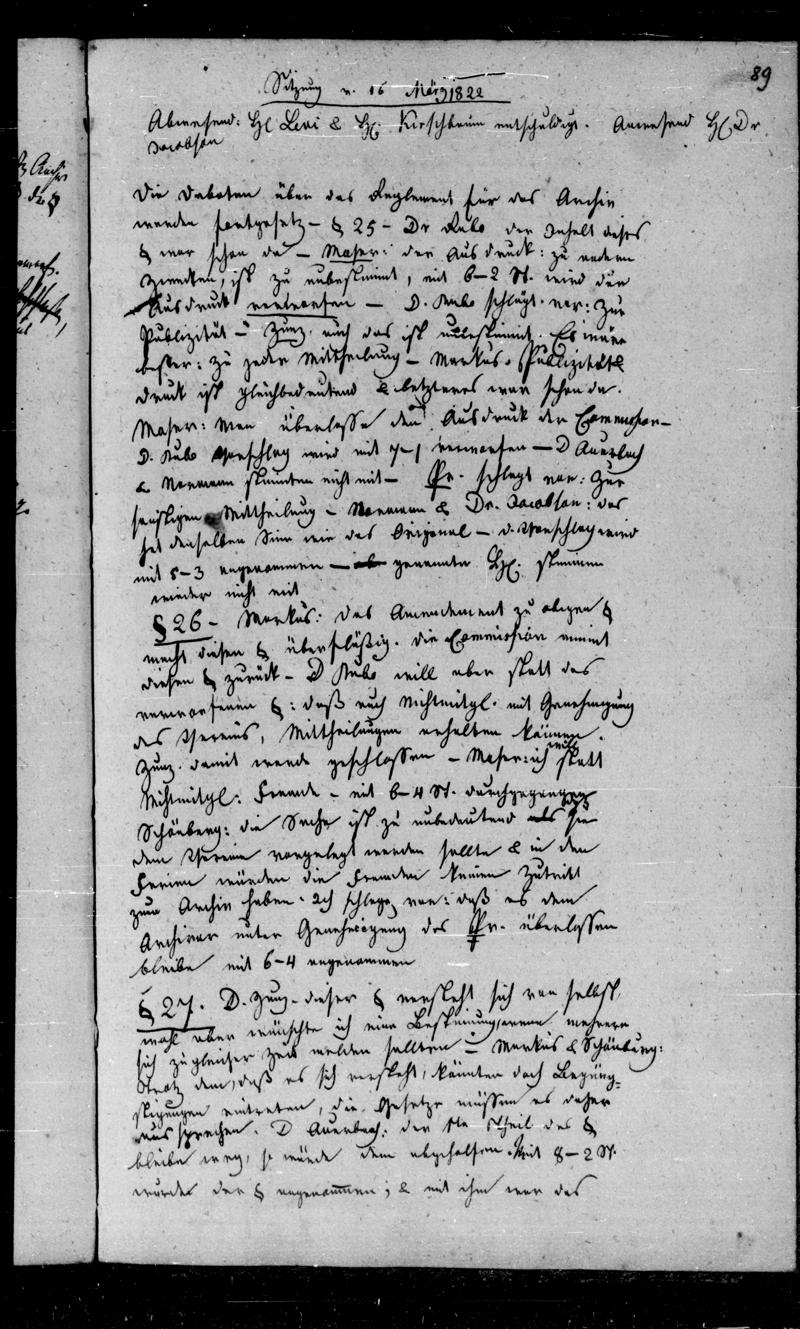 89
Sitzung v. 16 März 1822
Abwesend: HE Levi & HE. Kirschbaum entschuldigt. Anwesend HE Dr
Jacobson
Die Debatten über das Reglement für das Archiv
werden fortgesetz – § 25 – Dr Rubo der Inhalt dieses
§ war schon da – Moser: der Ausdruck: zu andern
Zwecken, ist zu unbestimmt, mit 6–2 St. wird der
Ausdruck verworfen – D. Rubo schlägt vor: zur
Publizität – Zunz. auch das ist unbestimmt. Es wäre
besser: zu jeder Mittheilung – Markus. Publizität &
Druck ist gleichbedeutend & letzteres war schon da.
Moser: Man überlasse den Ausdruck der Commission –
D. Rubo Vorschlag wird mit 7–1 verworfen – D Auerbach
& Normann stimmten nicht mit – Pr. schlägt vor: Zur
sonstigen Mittheilung – Normann & Dr. Jacobson: das
hat denselben Sinn wie das Original – d. Vorschlag wird
mit 5–3 angenommen – genannte HE. stimmen
wieder nicht mit
§ 26 – Markus: das Amendement zu obigen §
macht diesen § überflüßig. Die Commission nimmt
diesen § zurück – D Rubo will aber statt des
verworfenen §: daß auch Nichtmitgl. mit Genehmigung
des Vereins, Mittheilungen erhalten können.
Zunz. damit werde geschlossen – Moser: ich will statt
Nichtmitgl: Fremde – mit 6–4 St. durchgegangen
Schönberg: die Sache ist zu unbedeutend als daß sie
dem Verein vorgelegt werden sollte & in den
Ferien würden die Fremden keinen Zutritt
zum Archiv haben. Ich schlage vor: daß es dem
Archivar unter Genehmigung des Pr. überlassen
bleibe mit 6–4 angenommen
§ 27. D. Zunz. dieser § versteht sich von selbst,
wohl aber wünschte ich eine Bestimmung, wenn mehrere
sich zu gleicher Zeit melden sollten – Markus & Schönberg:
Trotz dem, daß es sich versteht, könnten doch Begün-
stigungen eintreten, die Gesetze müssen es daher
aussprechen. D Auerbach: der 1te Theil des §
bleibe weg, so würde dem abgeholfen. Mit 8–2 St.
wurde der § angenommen; & mit ihm war das